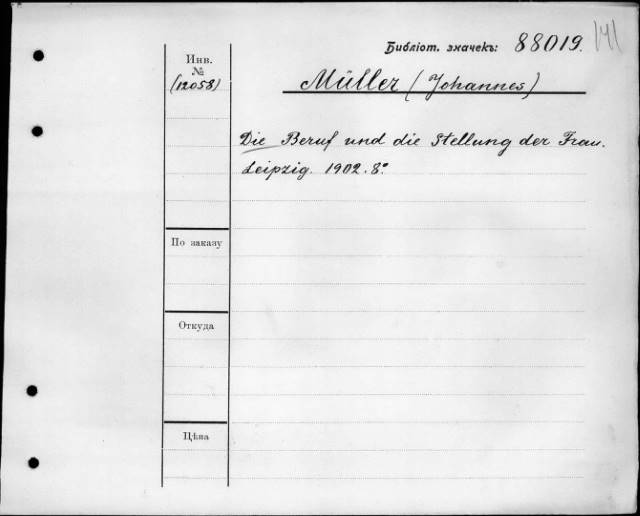 Библіот. значекъ: 88019. 141
Инв.
№
(12058)
Müller (Johannes)
Die Beruf und die Stellung der Frau.
Leipzig. 1902. 8º
По заказу
Откуда
Цѣна